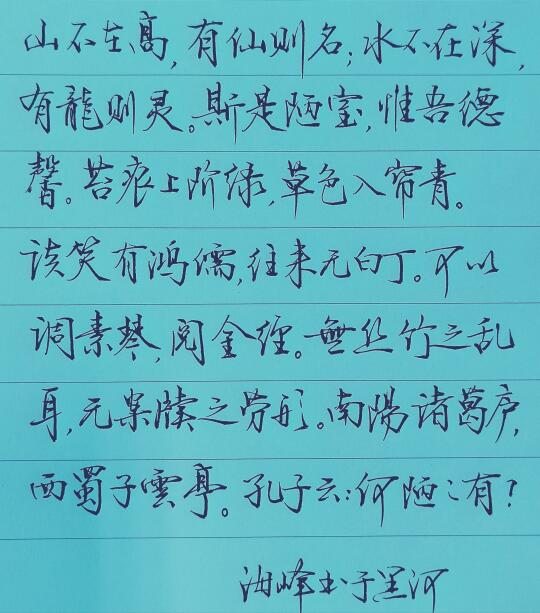 山不在高，有仙则名；水不在深，
有龍则灵。斯是陋室，惟吾德
馨。苔痕上阶绿，草色入帘青。
谈笑有鸿儒，往来无白丁。可以
调素琴，阅金经。無丝竹之乱
耳，无案牍之劳形。南陽诸葛庐，
西蜀子雲亭。孔子云：何陋之有？
海峰书于黑河